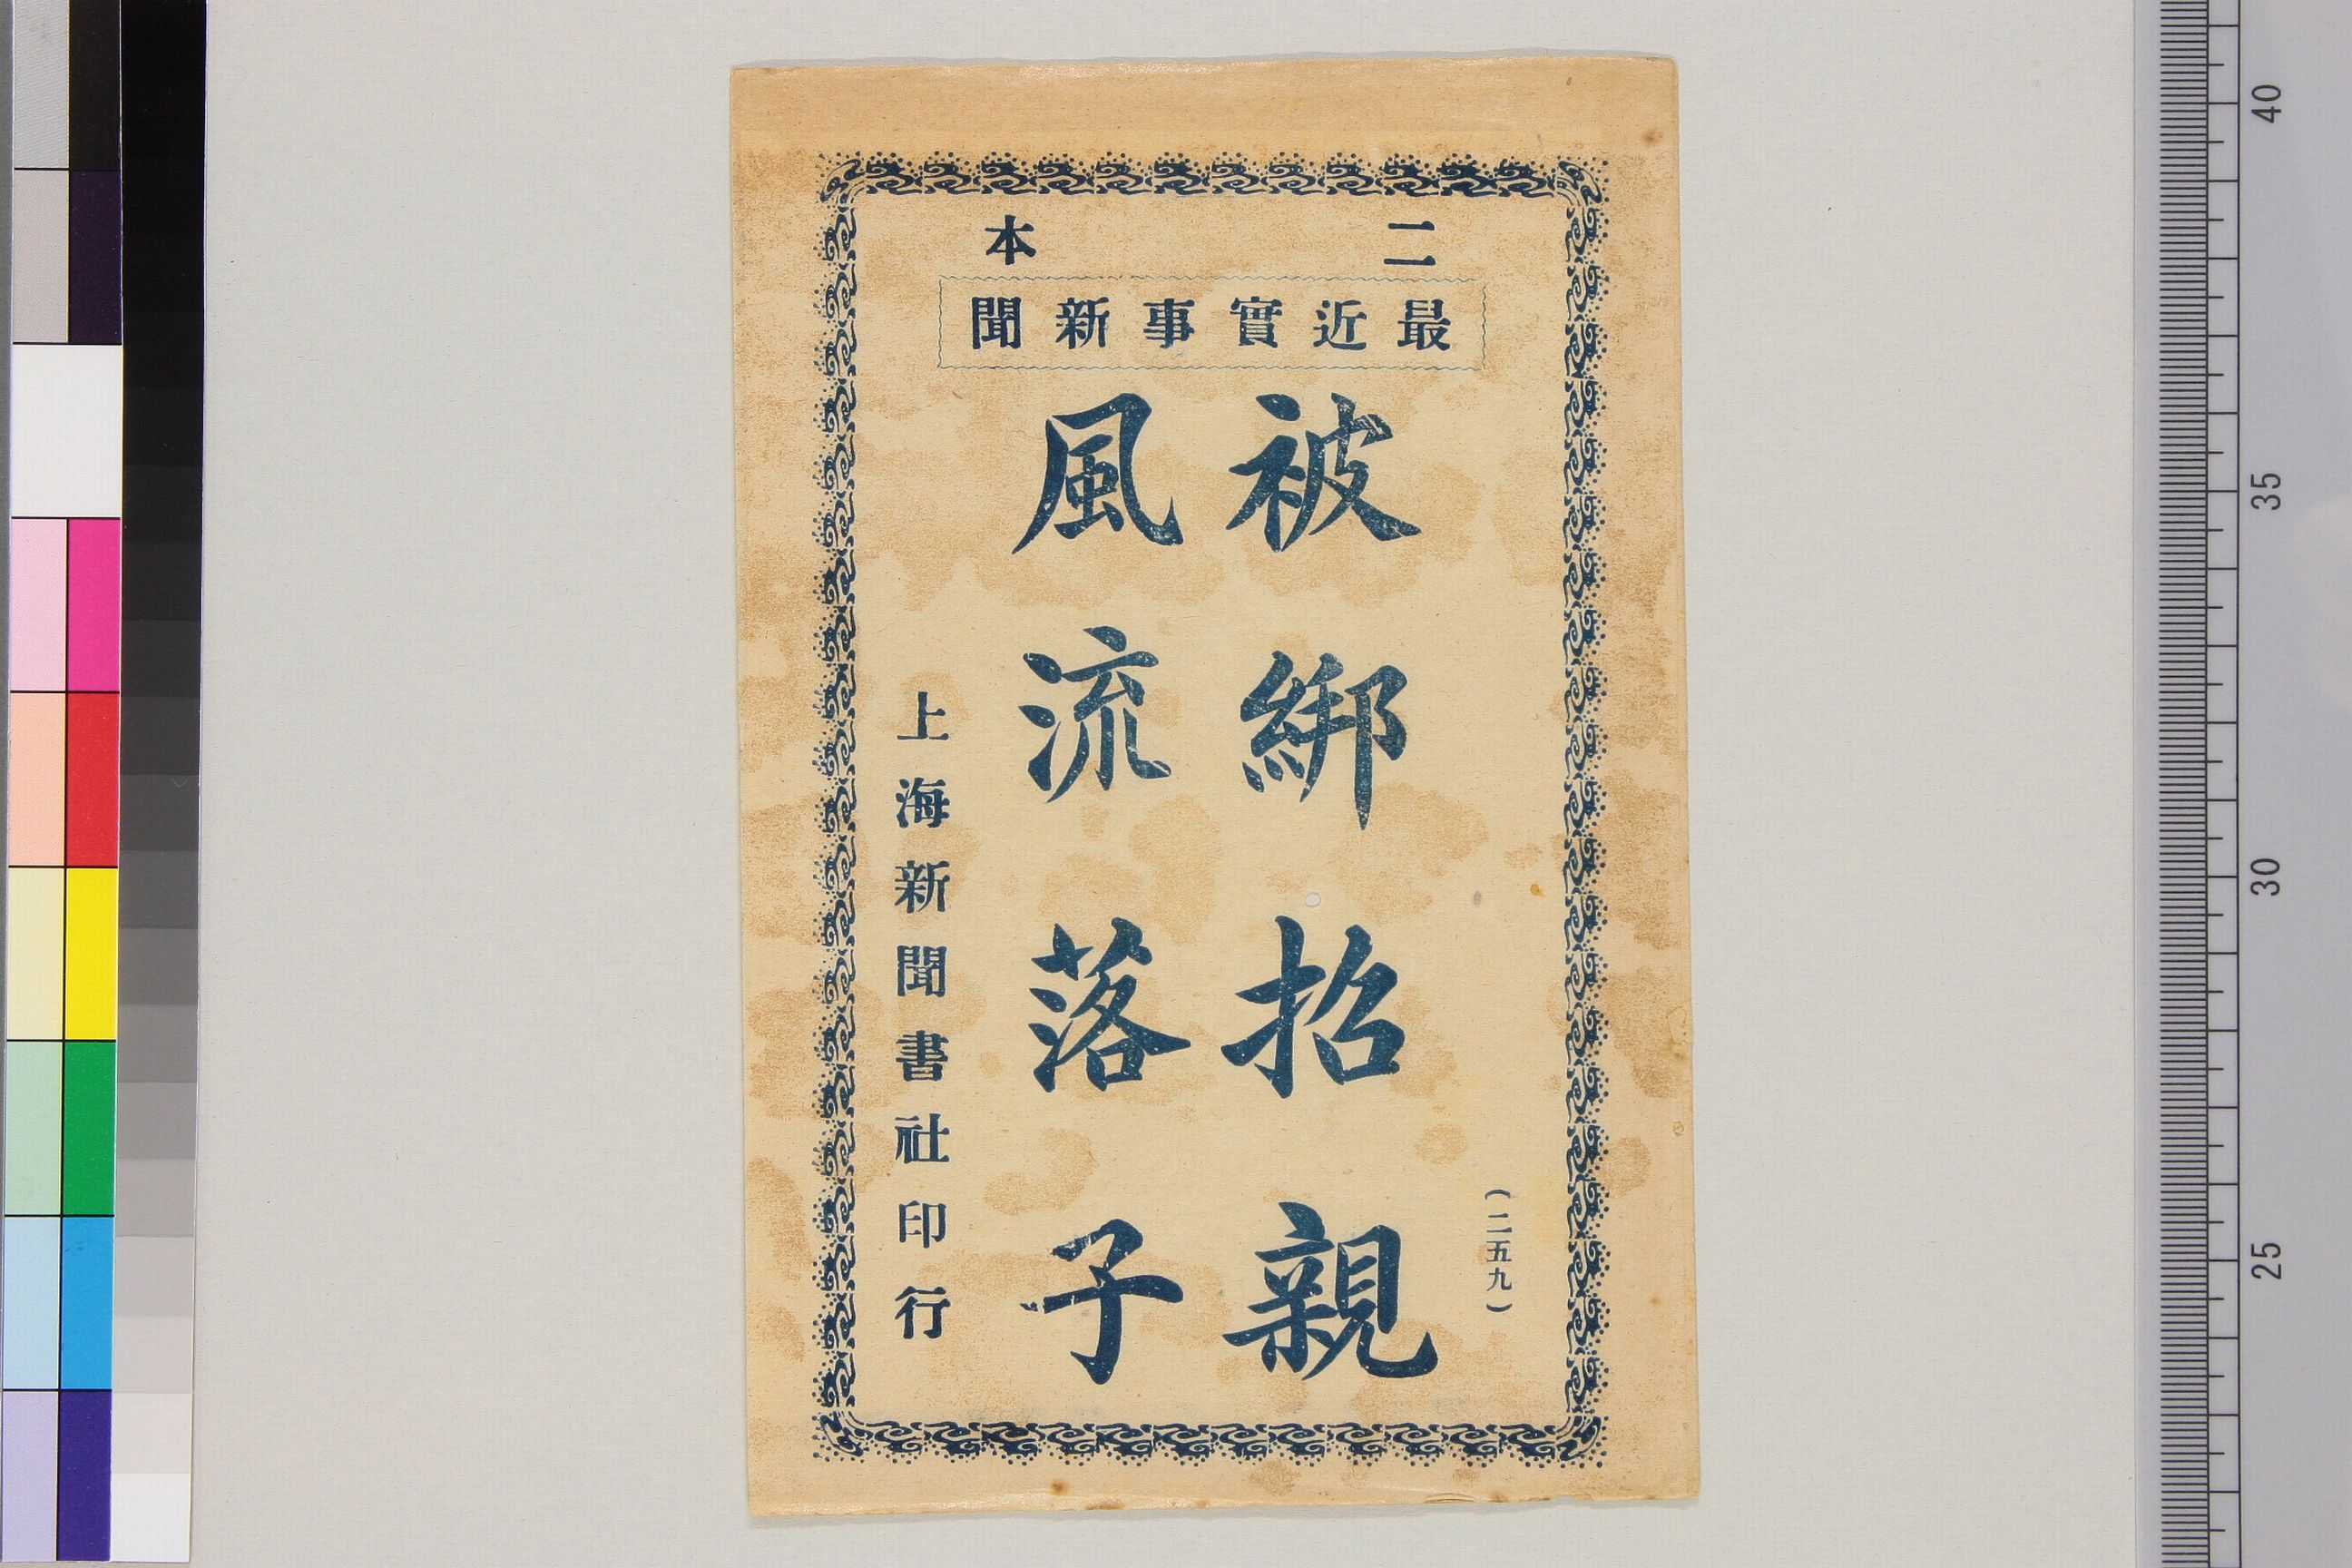 二本
最近實事新聞
(二五九)
被綁招親
風流落子
上海新聞書社印行
40
35
30
25